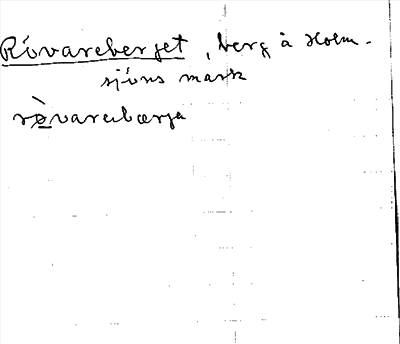 Rövareberget, berg å Holm-
sjöns mark
rø̀varebærja